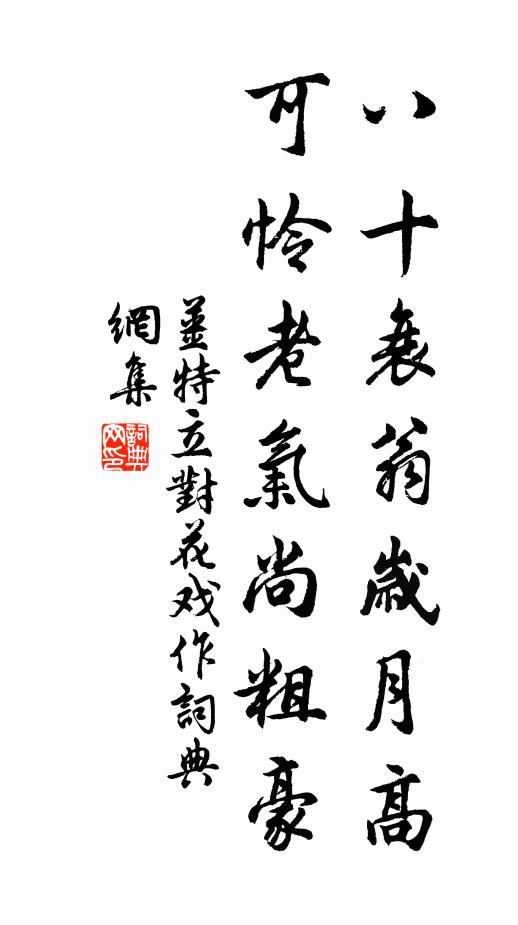 八十衰翁歲月高
可怜老氣尚粗豪
姜特立對花戏作詞典
網集
詞典網印